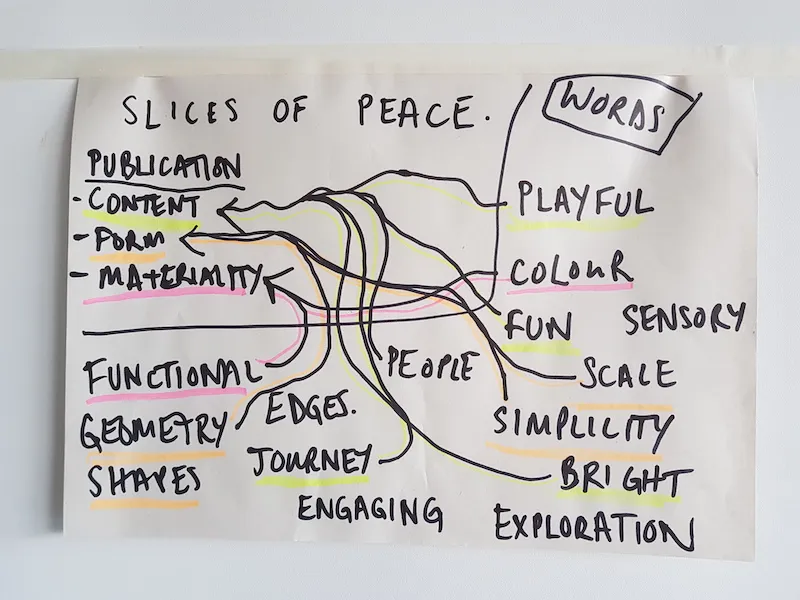 SLICES OF PEACE.
WORDS
PUBLICATION
- CONTENT
- FORM
- MATERIALITY
PLAYFUL
COLOUR
FUN
SENSORY
PEOPLE
SCALE
FUNCTIONAL
GEOMETRY
EDGES.
SIMPLICITY
SHAPES
JOURNEY
BRIGHT
ENGAGING
EXPLORATION